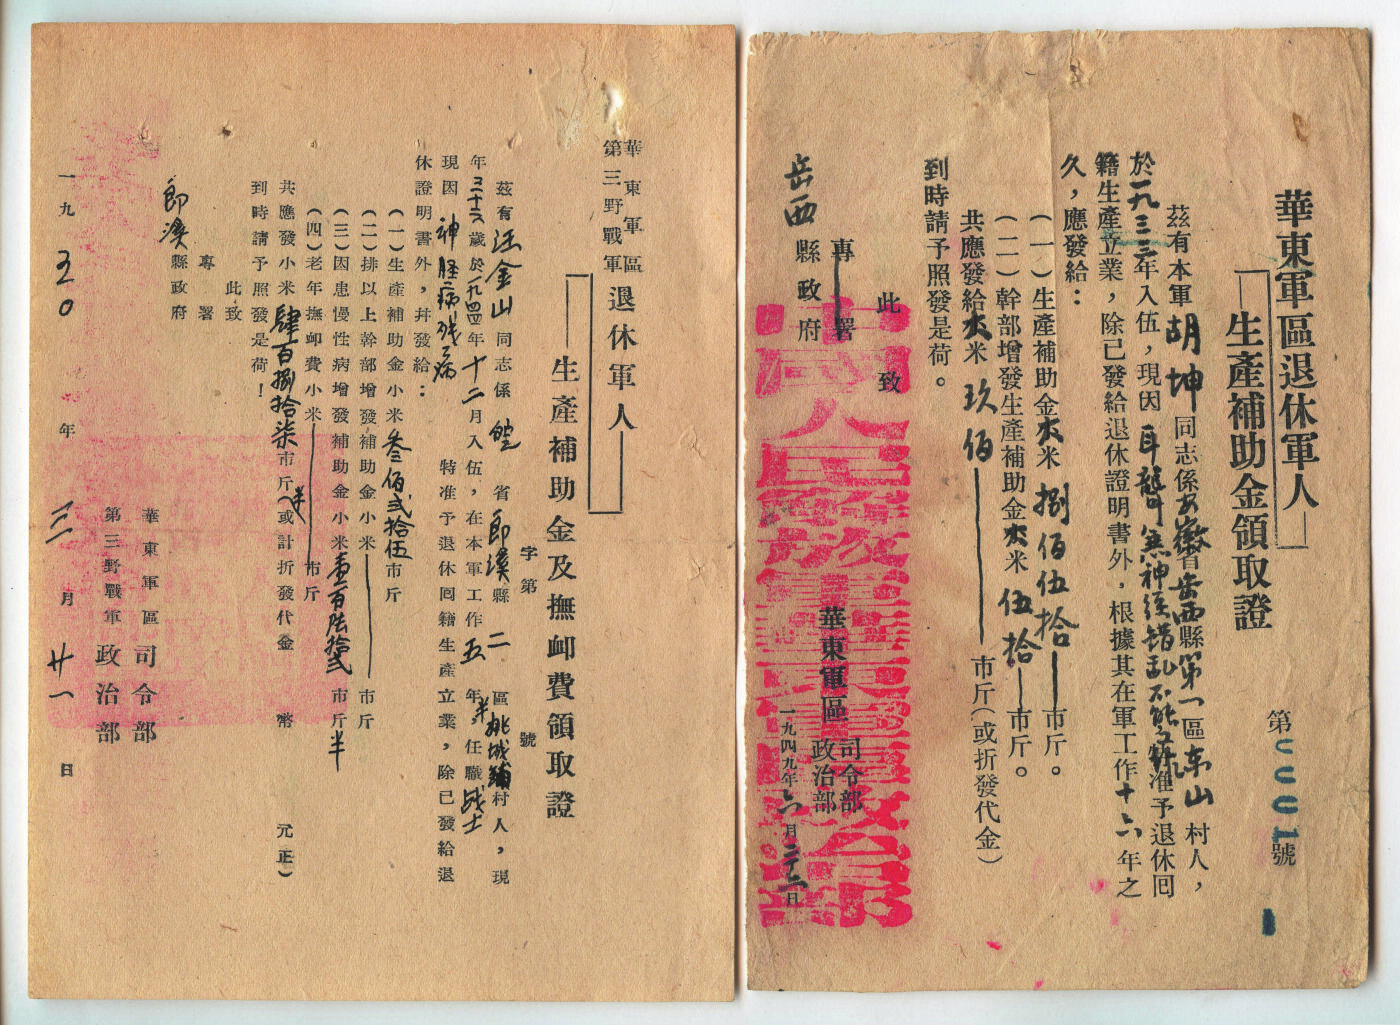 華東軍區退休軍人
生產補助金領取證
第0001號
茲有本軍胡坤同志係安徽省岳西縣第一區东山村人，
於一九三三年入伍，現因耳聾兼神经錯乱不能工作准予退休囘
籍生產立業，除已發給退休證明書外，根據其在軍工作十六年之
久，應發給：
（一）生產補助金大米捌佰伍拾市斤。
（二）幹部增發生產補助金大米伍拾市斤。
共應發給大米玖佰市斤（或折發代金）
到時請予照發是荷。
此致
專署
岳西縣政府
華東軍區司令部
政治部
一九四九年六月二十六日
中國人民解放軍華東軍區政治部
華東軍區
第三野戰軍
退休軍人
生產補助金及撫卹費領取證
字第 號
茲有汪金山同志係皖省郎溪縣二區姚城鋪村人，現
年三十六歲於一九四四年十二月入伍，在本軍工作五年半任職战士
現因神經病残病特准予退休囘籍生產立業，除已發給退
休證明書外，幷發給：
（一）生產補助金小米叁佰弍拾伍市斤
（二）排以上幹部增發補助金小米市斤
（三）因患慢性病增發補助金小米壹百陸拾弍市斤半
（四）老年撫卹費小米市斤
共應發小米肆百捌拾柒市斤半（或計折發代金 幣 元正）
到時請予照發是荷！
此致
專署
郎溪縣政府
華東軍區司令部
第三野戰軍政治部
一九五0年三月廿一日